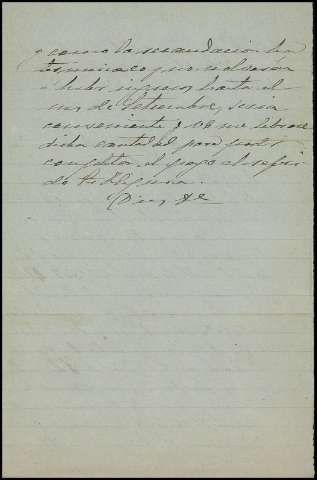 y como la recaudacion ha
terminado y no volverá
á haber ingresos hasta el
mes de Setiembre, seria
conveniente q. V.E. me librase
dicha cantidad para poder
completar el pago al referi-
do
Dios &c